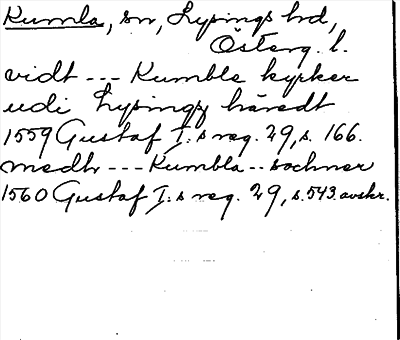 Kumla, sn, Lysings hd,
Österg. l.
vidt --- Kumble kyrker
udi Lysingz häredt
1559 Gustaf I:s reg. 29, s. 166.
medh --- Kumbla -- sochner
1560 Gustaf I:s reg. 29, s. 543. avskr.